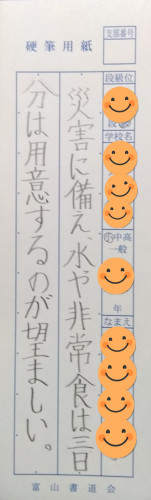 硬筆用紙
支部番号
段級位
学校名
小中高
一般
年
なまえ
災害に備え、水や非常食は三日
分は用意するのが望ましい。
富山書道会